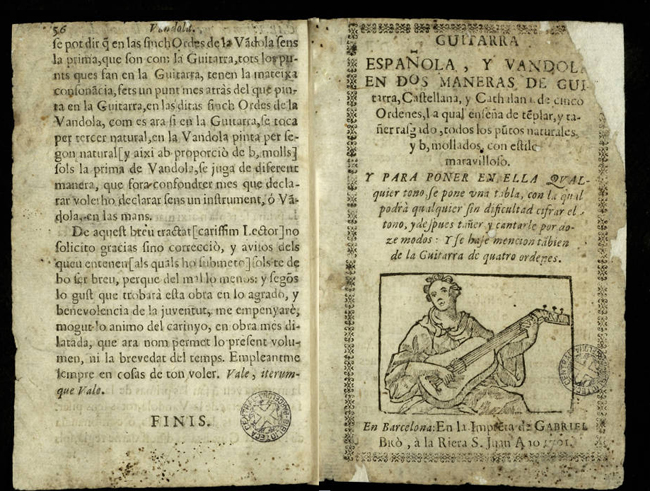 56 Vandola.
se pot dir q̃ en las sinch Ordes de la Vãdola sens
la prima, que son com la Guitarra, tots los pu-
nts ques fan en la Guitarra, tenen la mateixa
consonãcia, fets un punt mes atràs del que pin-
ta en la Guitarra, en las ditas sinch Ordes de la
Vandola, com es ara si en la Guitarra, se toca
per tercer natural, en la Vandola pinta per se-
gon natural [y aixi ab proporciò de b, molls]
sols la prima de Vandola, se juga de diferent
manera, que fora confondrer mes que decla-
rar voleho declarar sens un instrument, ò Vã-
dola, en las mans.
De aquest breu tractat [carissim Lector] no
solicito gracias sino correcciò, y avisos dels
queu entenen [als quals ho subineto] sols te de
bo ser breu, perque del mal lo menos: y segõs
lo gust que trobarà esta obra en lo agrado, y
benevolencia de la juventut, me empenyarè,
mogut lo animo del carinyo, en obra mes di-
latada, que ara nom permet lo present volu-
men, ni la brevedat del temps. Empleantme
sempre en cosas de ton voler. Vale, iterum-
que Vale.
FINIS.
GUITARRA
ESPAÑOLA, Y VANDOLA
EN DOS MANERAS DE GUI-
tarra, Castellana, y Cathalana de cinco
Ordenes, la qual enseña de tẽplar, y ta-
ñer rasgado, todos los pũtos naturales,
y b, mollados, con estilo
maravilloso.
Y PARA PONER EN ELLA QUAL-
quier tono, se pone una tabla, con la qual
podrà qualquier sin dificultad cifrar el
tono, y despues tañer y cantarle por do-
ze modos: Y se haze mencion tãbien
de la Guitarra de quatro ordenes.
En Barcelona: En la Imprẽta de GABRIEL
BRÒ, à la Riera S. Juan